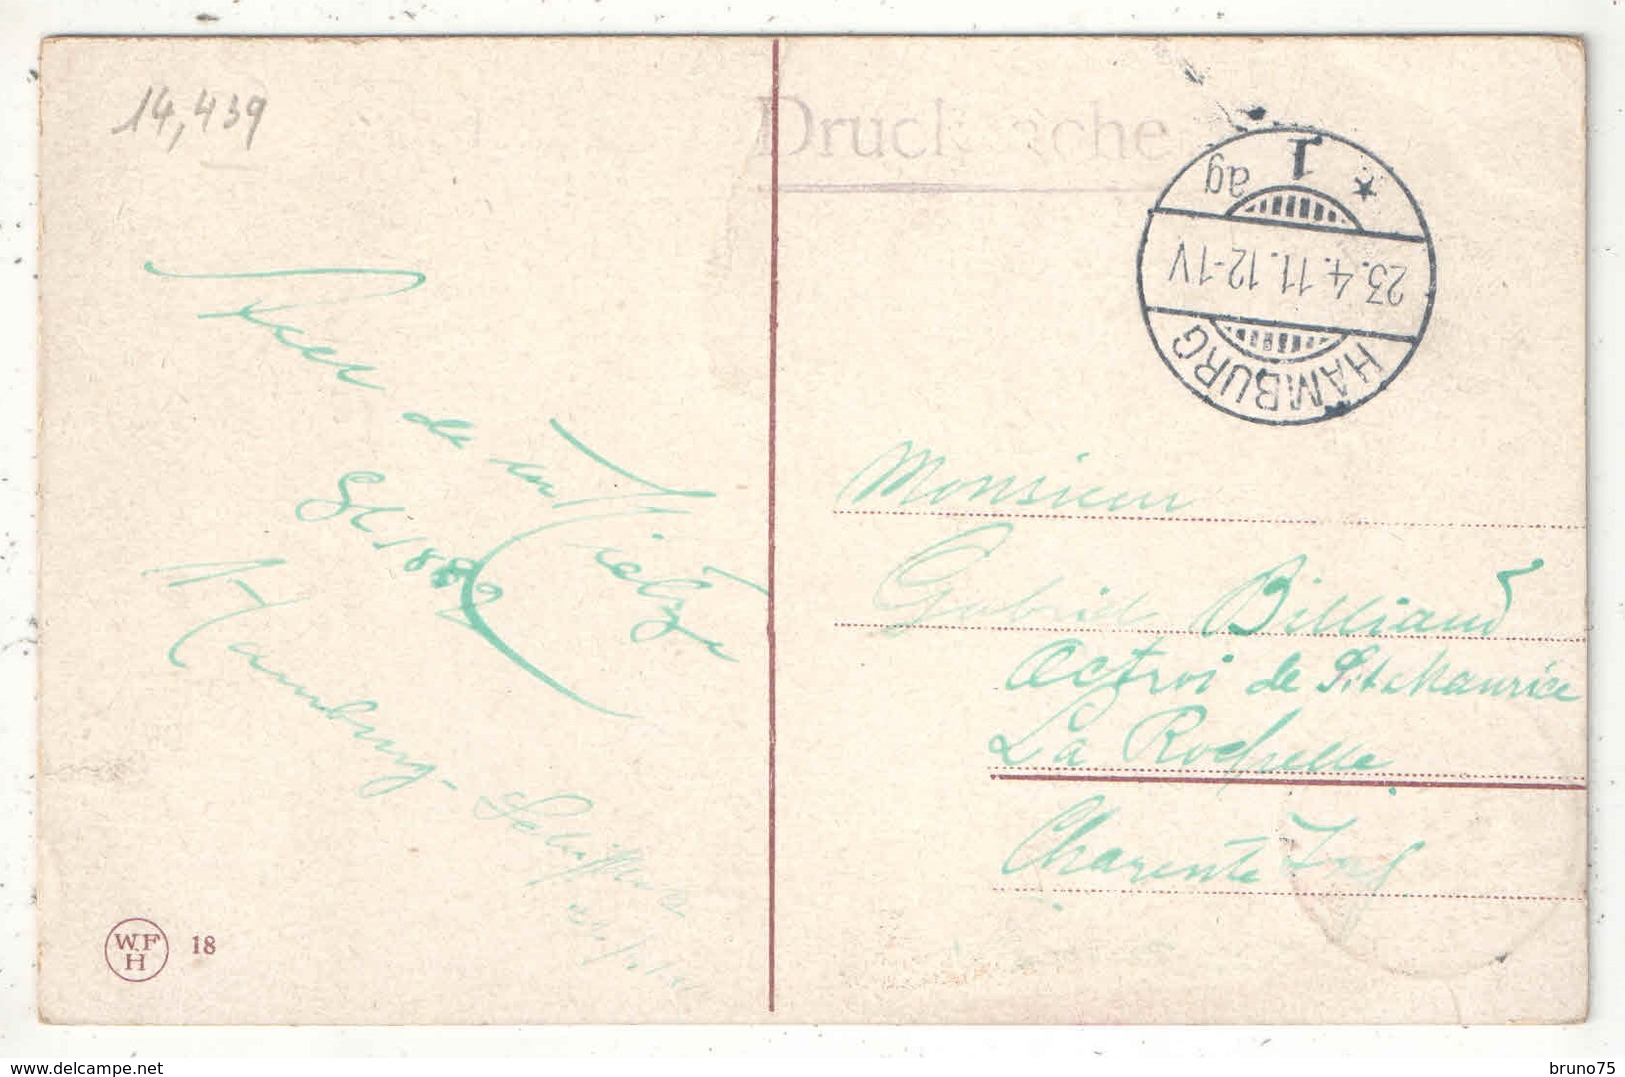 14,439
Drucksache
HAMBURG
23.4.11.12-1V
* 1 ag
de
1889
Hamburg -
Monsieur
Gabriel Billiaud
Octroi de St Maurice
La Rochelle
Charente Inf
W.F
H
18
delcampe.net
bruno75